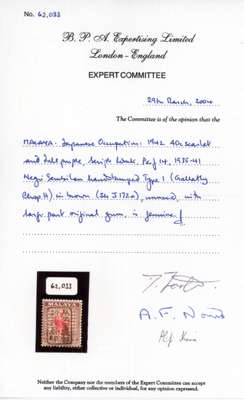 No. 62,033
B. P. A. Expertising Limited
London - England
EXPERT COMMITTEE
29th March, 2004
The Committee is of the opinion that the
MALAYA: Japanese Occupation: 1942 40c scarlet
and dull purple, script Wmk. Perf 14, 1935-41
Negri Sembilan handstamped Type 1 (Gallatly
Chop.H) in brown (SG J172a), unused, with
large part original gum, is genuine.
62,033
MALAYA
A. F. Norris
Neither the Company nor the members of the Expert Committee can accept
any liability, either collective or individual, for any opinion expressed.